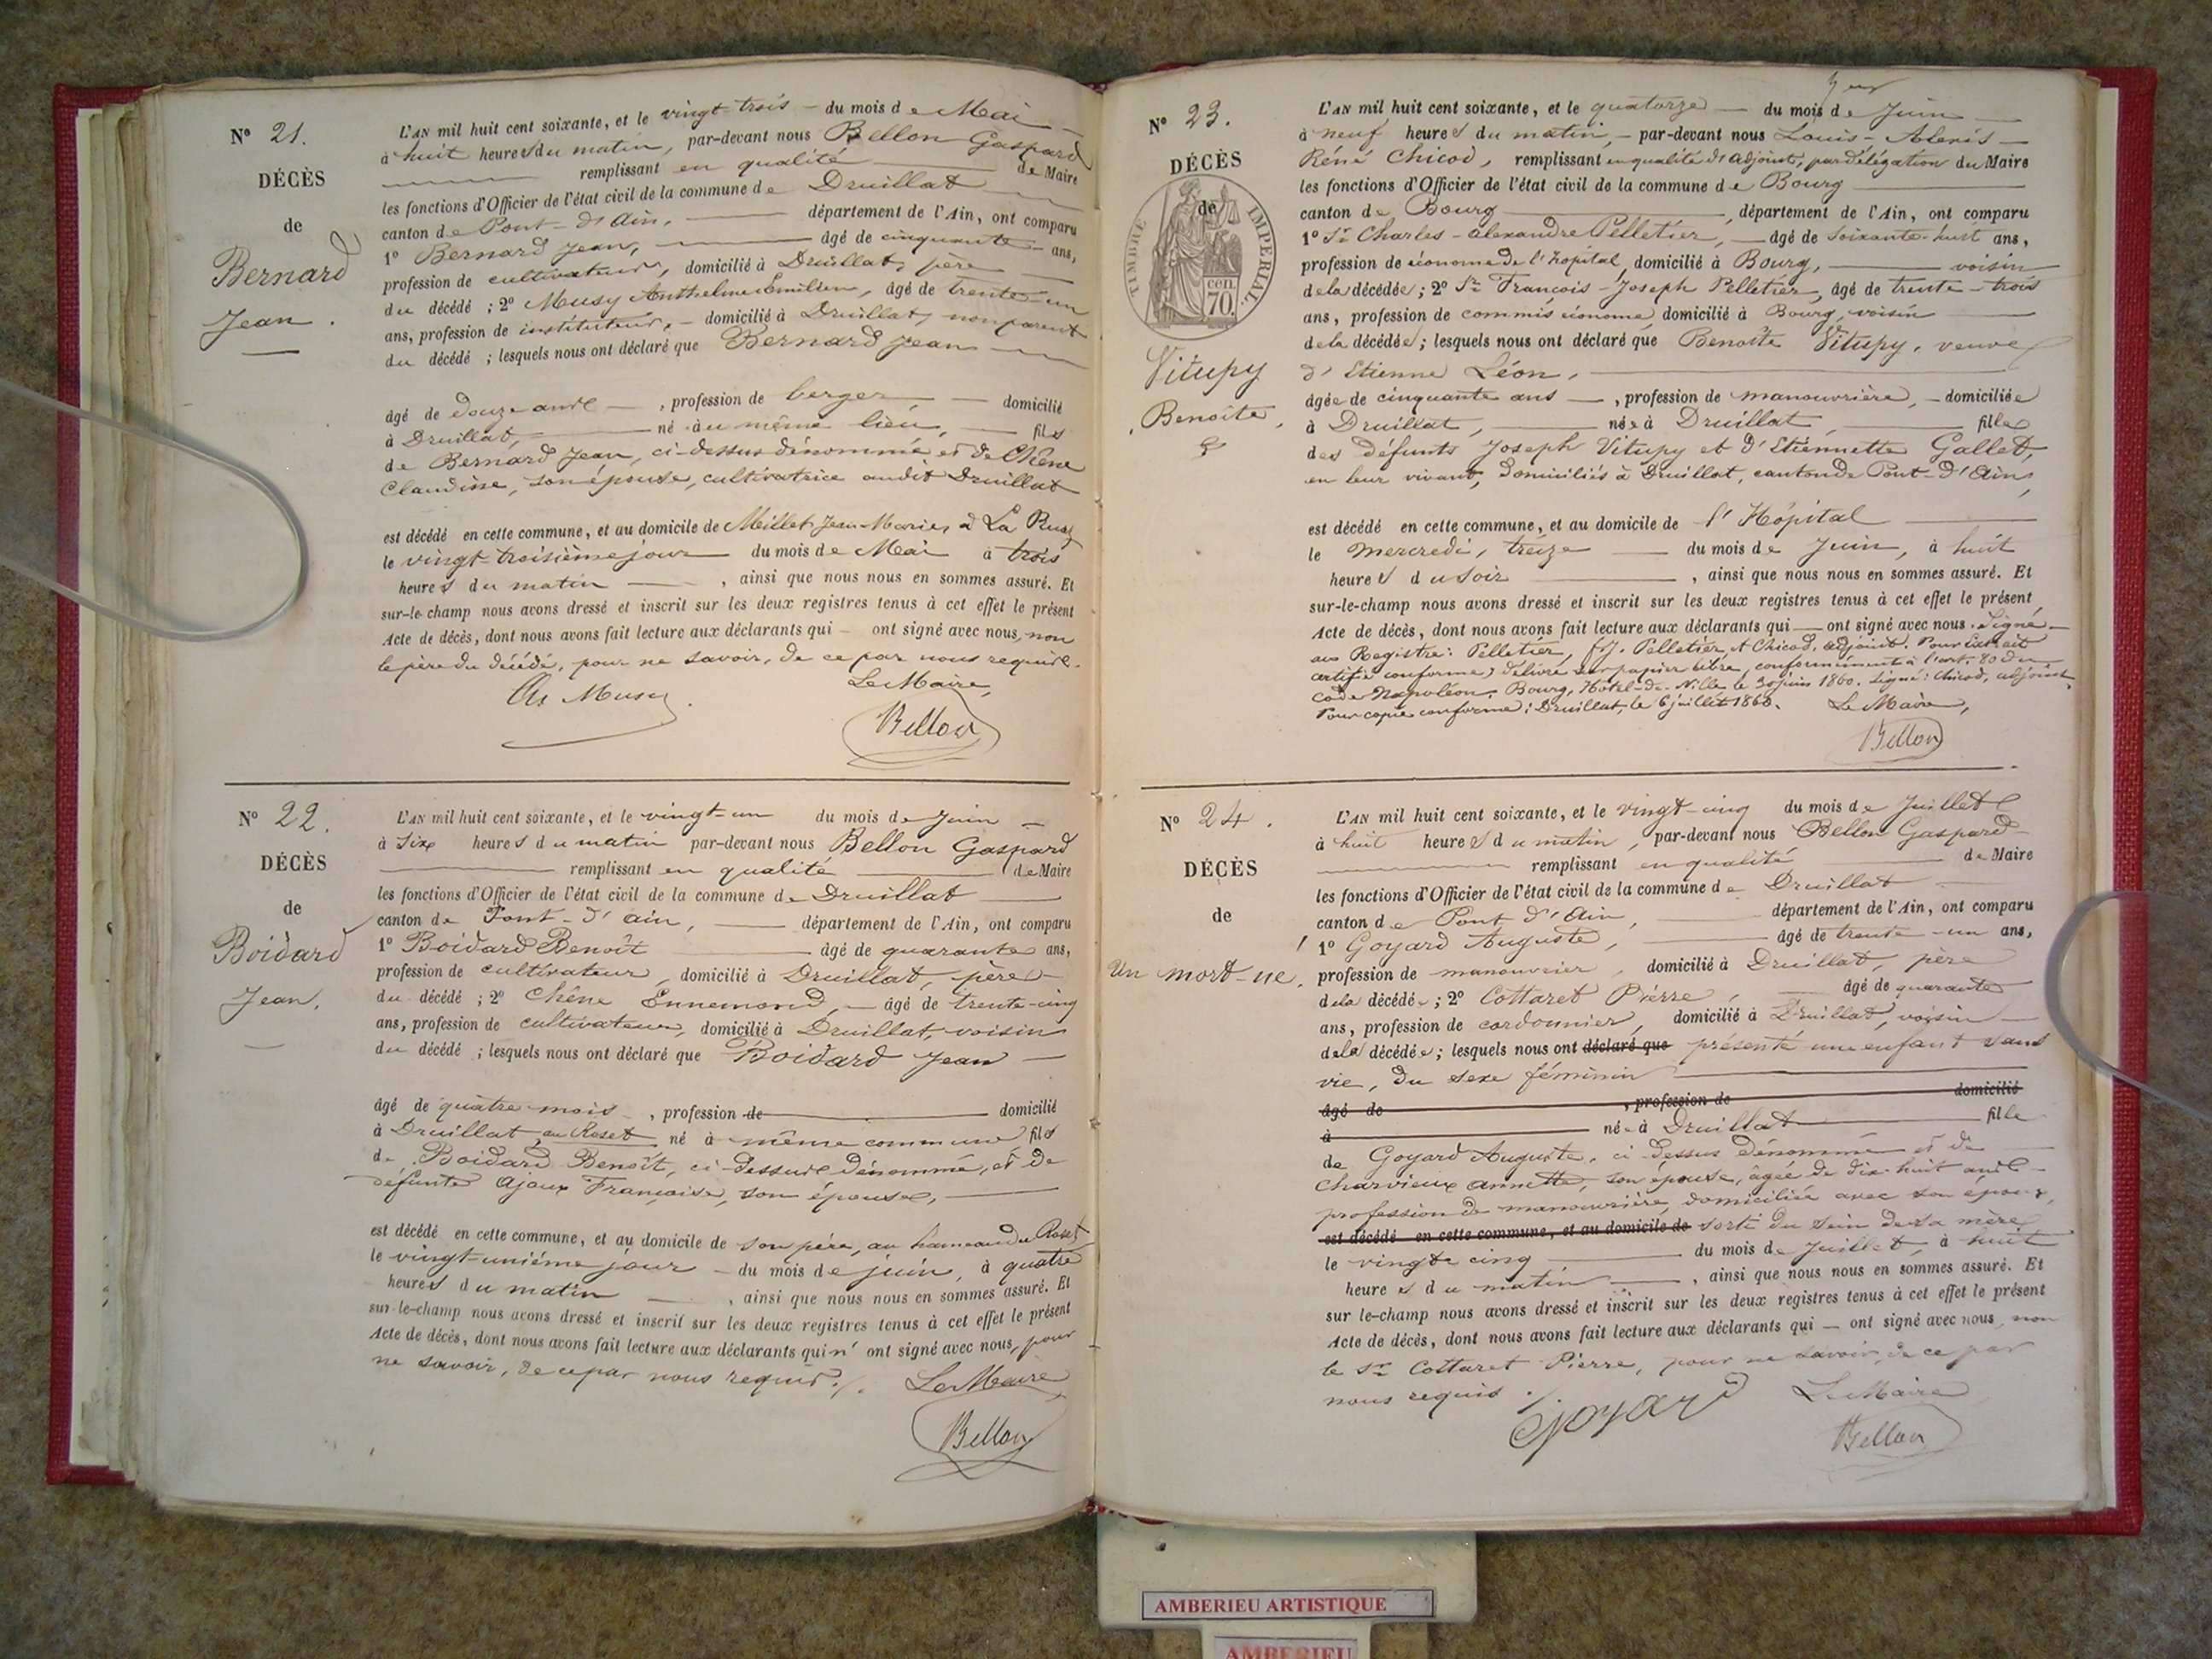 N° 21.
DÉCÈS
de
Bernard
Jean.
L'AN mil huit cent soixante, et le vingt-trois du mois de Mai
à huit heures du matin, par-devant nous Bellon Gaspard
remplissant en qualité de Maire
les fonctions d'Officier de l'état civil de la commune de Druillat
canton de Pont-d'Ain, département de l'Ain, ont comparu
1° Bernard Jean, âgé de cinquante ans,
profession de cultivateur, domicilié à Druillat, père
du décédé ; 2° Musy Anthelme Emilien, âgé de trente-un
ans, profession de instituteur, domicilié à Druillat, non parent
du décédé ; lesquels nous ont déclaré que Bernard Jean
âgé de douze ans, profession de berger domicilié
à Druillat, né au même lieu, fils
de Bernard Jean, ci-dessus dénommé et de Chêne
Claudine, son épouse, cultivatrice audit Druillat
est décédé en cette commune, et au domicile de Millet Jean-Marie, à La Ruaz
le vingt-troisième jour du mois de Mai à trois
heures du matin, ainsi que nous nous en sommes assuré. Et
sur-le-champ nous avons dressé et inscrit sur les deux registres tenus à cet effet le présent
Acte de décès, dont nous avons fait lecture aux déclarants qui ont signé avec nous, non
le père du décédé, pour ne savoir, de ce par nous requis.
Musy Le Maire,
Bellon
N° 22.
DÉCÈS
de
Boidard
Jean.
L'AN mil huit cent soixante, et le vingt-un du mois de juin
à six heures du matin par-devant nous Bellon Gaspard
remplissant en qualité de Maire
les fonctions d'Officier de l'état civil de la commune de Druillat
canton de Pont-d'ain, département de l'Ain, ont comparu
1° Boidard Benoît âgé de quarante ans,
profession de cultivateur, domicilié à Druillat, père
du décédé ; 2° Chêne Ennemond, âgé de trente-cinq
ans, profession de cultivateur, domicilié à Druillat, voisin
du décédé ; lesquels nous ont déclaré que Boidard Jean
âgé de quatre mois, profession de domicilié
à Druillat, au Roset né à même commune fils
de Boidard Benoît, ci-dessus dénommé, et de
défunte Ajoux Françoise, son épouse,
est décédé en cette commune, et au domicile de son père, au hameau du Roset
le vingt-unième jour du mois de juin, à quatre
heures du matin, ainsi que nous nous en sommes assuré. Et
sur-le-champ nous avons dressé et inscrit sur les deux registres tenus à cet effet le présent
Acte de décès, dont nous avons fait lecture aux déclarants qui n'ont signé avec nous, pour
ne savoir, de ce par nous requis. Le Maire
Bellon
N° 23.
DÉCÈS
de
TIMBRE IMPÉRIAL.
cen.
70.
Vitupy
Benoîte,
L'AN mil huit cent soixante, et le quatorze du mois de Juin
à neuf heures du matin, par-devant nous Louis-Alexis-
Réné Chicod, remplissant en qualité d'adjoint, par délégation du Maire
les fonctions d'Officier de l'état civil de la commune de Bourg
canton de Bourg, département de l'Ain, ont comparu
1° Sr Charles-alexandre Pelletier, âgé de soixante-huit ans,
profession de économe de l'hôpital, domicilié à Bourg, voisin
de la décédée ; 2° Sr François-Joseph Pelletier, âgé de trente-trois
ans, profession de commis économe, domicilié à Bourg, voisin
de la décédée ; lesquels nous ont déclaré que Benoîte Vitupy, veuve
d'Etienne Léon,
âgée de cinquante ans, profession de manouvrière, domiciliée
à Druillat, née à Druillat, fille
des défunts Joseph Vitupy et d'Etiennette Gallet,
en leur vivant, domiciliés à Druillat, canton de Pont-d'Ain,
est décédé en cette commune, et au domicile de l'Hôpital
le mercredi, treize du mois de Juin, à huit
heures du soir, ainsi que nous nous en sommes assuré. Et
sur-le-champ nous avons dressé et inscrit sur les deux registres tenus à cet effet le présent
Acte de décès, dont nous avons fait lecture aux déclarants qui ont signé avec nous. Signé
au Registre : Pelletier, f.J. Pelletier et Chicod, adjoint. Pour Extrait
certifié conforme, délivré sur papier libre, conformément à l'art. 80 du
code Napoléon. Bourg, Hôtel-de-Ville le 30 juin 1860. Signé : Chicod, adjoint.
Pour copie conforme : Druillat, le 6 juillet 1860. Le Maire,
Bellon
N° 24.
DÉCÈS
de
Un mort-né.
L'AN mil huit cent soixante, et le vingt-cinq du mois de Juillet
à huit heures du matin, par-devant nous Bellon Gaspard
remplissant en qualité de Maire
les fonctions d'Officier de l'état civil de la commune de Druillat
canton de Pont d'Ain, département de l'Ain, ont comparu
1° Goyard Auguste, âgé de trente-un ans,
profession de manouvrier, domicilié à Druillat, père
de la décédée ; 2° Cottaret Pierre, âgé de quarante
ans, profession de cordonnier, domicilié à Druillat, voisin
de la décédée ; lesquels nous ont déclaré que présenté une enfant sans
vie, du sexe féminin
âgé de , profession de domicilié
à née à Druillat fille
de Goyard Auguste, ci-dessus dénommé et de
Charvieux annette, son épouse, âgée de dix-huit ans
profession de manouvrière, domiciliée avec son époux,
est décédé en cette commune, et au domicile de sorti du sein de sa mère
le vingt cinq du mois de Juillet, à huit
heures du matin, ainsi que nous nous en sommes assuré. Et
sur le-champ nous avons dressé et inscrit sur les deux registres tenus à cet effet le présent
Acte de décès, dont nous avons fait lecture aux déclarants qui ont signé avec nous, non
le Sr Cottaret Pierre, pour ne savoir, de ce par
nous requis. Goyard Le Maire
Bellon
AMBERIEU ARTISTIQUE
AMBERIEU